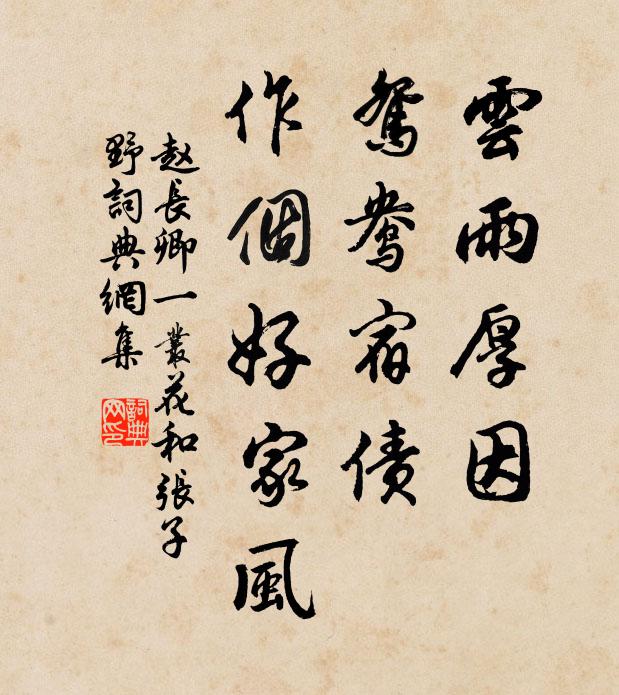 雲雨厚因
鴛鴦宿債
作個好家風
赵長卿一叢花和張子
野詞典網集
詞典网印